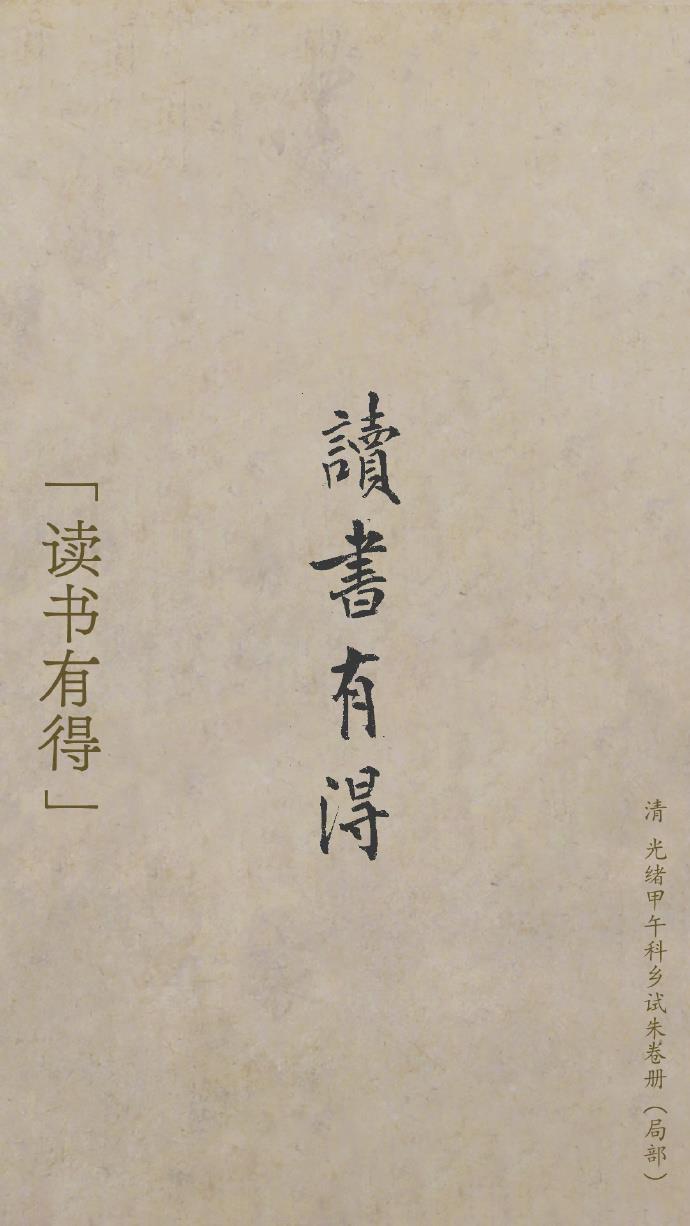 讀書有得
「读书有得」
清 光绪甲午科乡试朱卷册（局部）